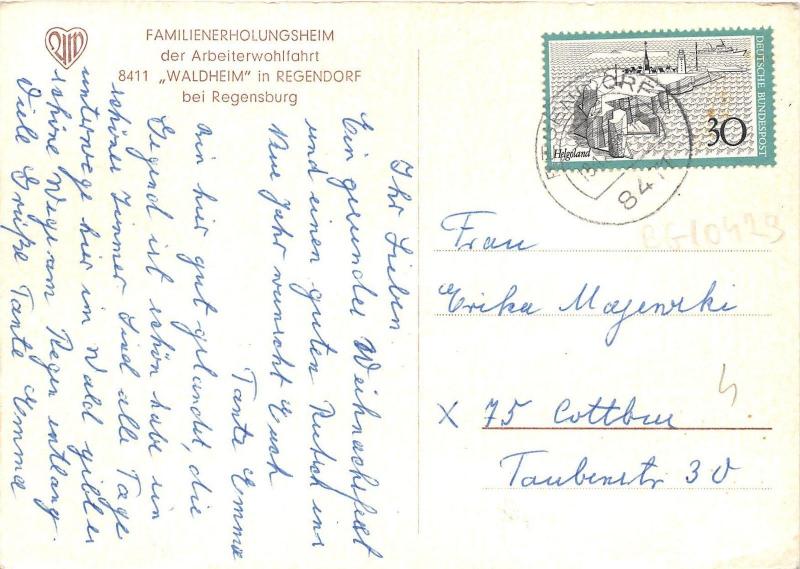 FAMILIENERHOLUNGSHEIM
der Arbeiterwohlfahrt
8411 „WALDHEIM" in REGENDORF
bei Regensburg
Ihr Lieben
Ein gesundes Weihnachtsfest
und einen guten Rutsch ins
Neue Jahr wünscht Euch
Tante Emma
bin hier gut gelandet, die
Gegend ist schön habe ein
schönes Zimmer. Sind alle Tage
unterwegs hier im Wald gibt es
schöne Wege am Regen entlang.
Viele Grüße Tante Emma
DEUTSCHE BUNDESPOST
Helgoland
30
8411
Frau
Erika Majewski
X 75 Cottbus
Taubenstr 30
RG10423